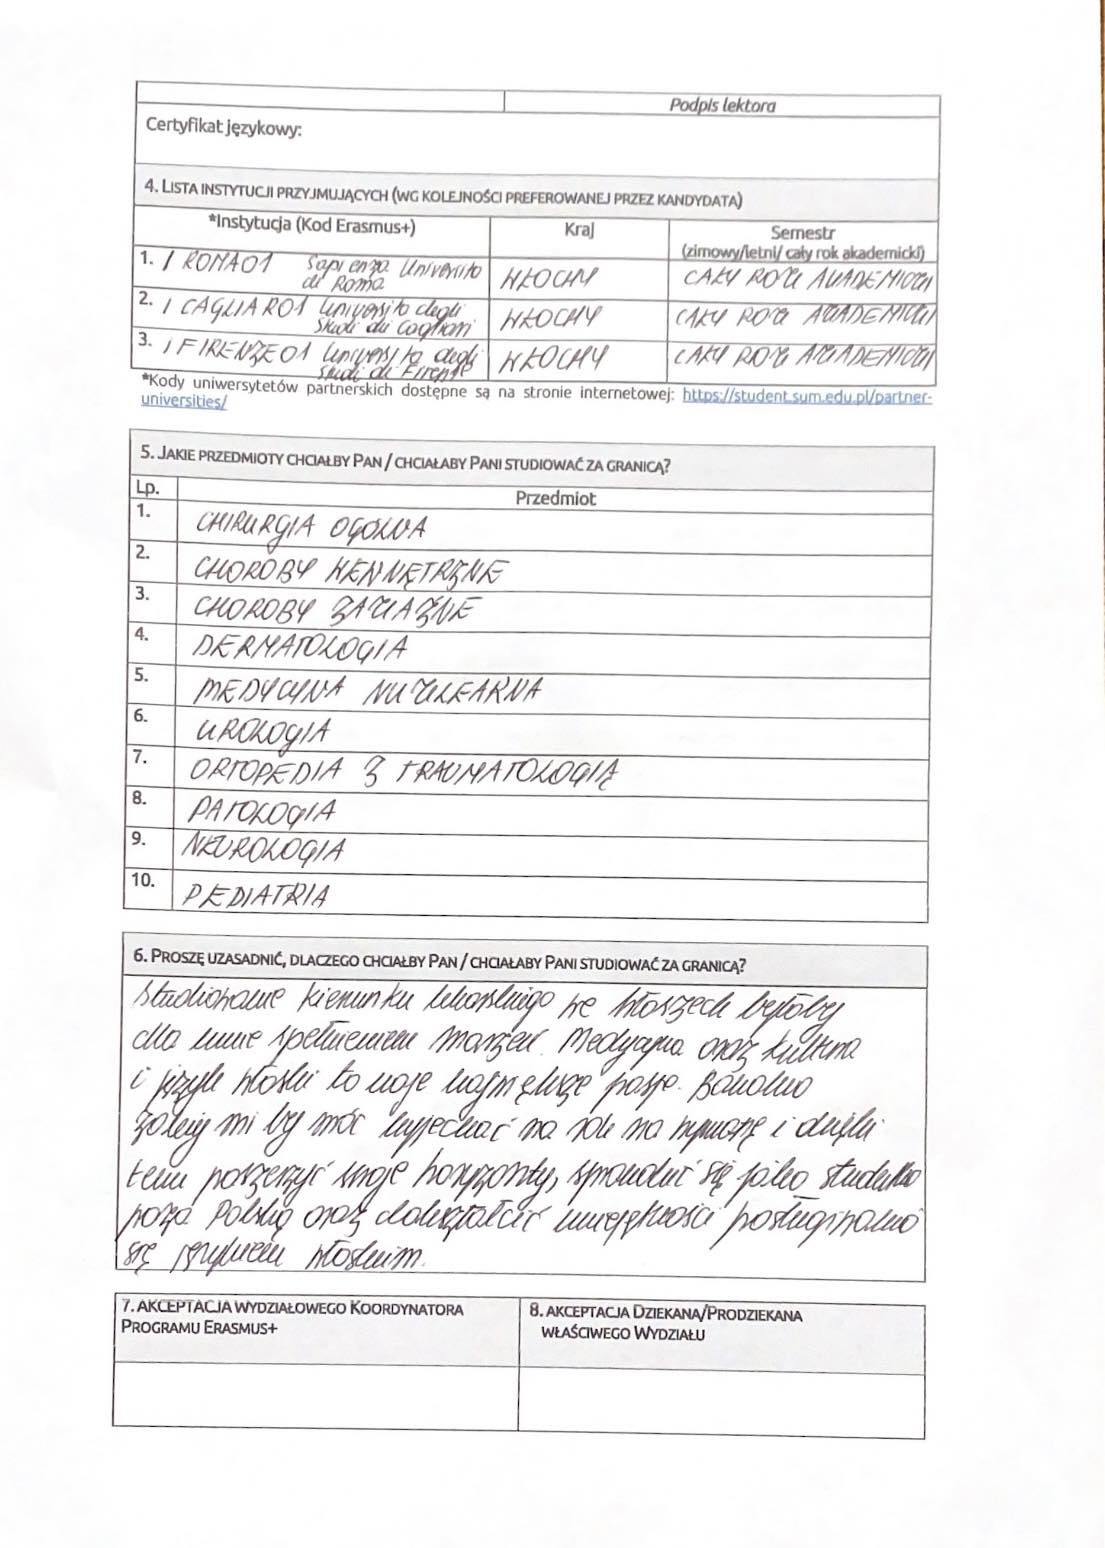 Podpis lektora
Certyfikat językowy:
4. LISTA INSTYTUCJI PRZYJMUJĄCYCH (WG KOLEJNOŚCI PREFEROWANEJ PRZEZ KANDYDATA)
*Instytucja (Kod Erasmus+) Kraj Semestr
(zimowy/letni/ cały rok akademicki)
1. I ROMA01 Sapienza Universita WŁOCHY CAŁY ROK AKADEMICKI
di Roma
2. I CAGLIAR01 Universita degli WŁOCHY CAŁY ROK AKADEMICKI
Studi di Cagliari
3. I FIRENZE01 Universita degli WŁOCHY CAŁY ROK AKADEMICKI
Studi di Firenze
*Kody uniwersytetów partnerskich dostępne są na stronie internetowej: https://student.sum.edu.pl/partner-
universities/
5. JAKIE PRZEDMIOTY CHCIAŁBY PAN / CHCIAŁABY PANI STUDIOWAĆ ZA GRANICĄ?
Lp. Przedmiot
1. CHIRURGIA OGÓLNA
2. CHOROBY WEWNĘTRZNE
3. CHOROBY ZAKAŹNE
4. DERMATOLOGIA
5. MEDYCYNA NUKLEARNA
6. UROLOGIA
7. ORTOPEDIA Z TRAUMATOLOGIĄ
8. PATOLOGIA
9. NEUROLOGIA
10. PEDIATRIA
6. PROSZĘ UZASADNIĆ, DLACZEGO CHCIAŁBY PAN / CHCIAŁABY PANI STUDIOWAĆ ZA GRANICĄ?
Studiowanie kierunku lekarskiego we Włoszech byłoby
dla mnie spełnieniem marzeń. Medycyna oraz kultura
i język włoski to moje największe pasje. Bardzo
zależy mi by móc wyjechać na rok na wymianę i dzięki
temu poszerzyć swoje horyzonty, sprawdzić się jako studentka
poza Polską oraz dokształcić umiejętności posługiwania
się językiem włoskim.
7. AKCEPTACJA WYDZIAŁOWEGO KOORDYNATORA
PROGRAMU ERASMUS+
8. AKCEPTACJA DZIEKANA/PRODZIEKANA
WŁAŚCIWEGO WYDZIAŁU